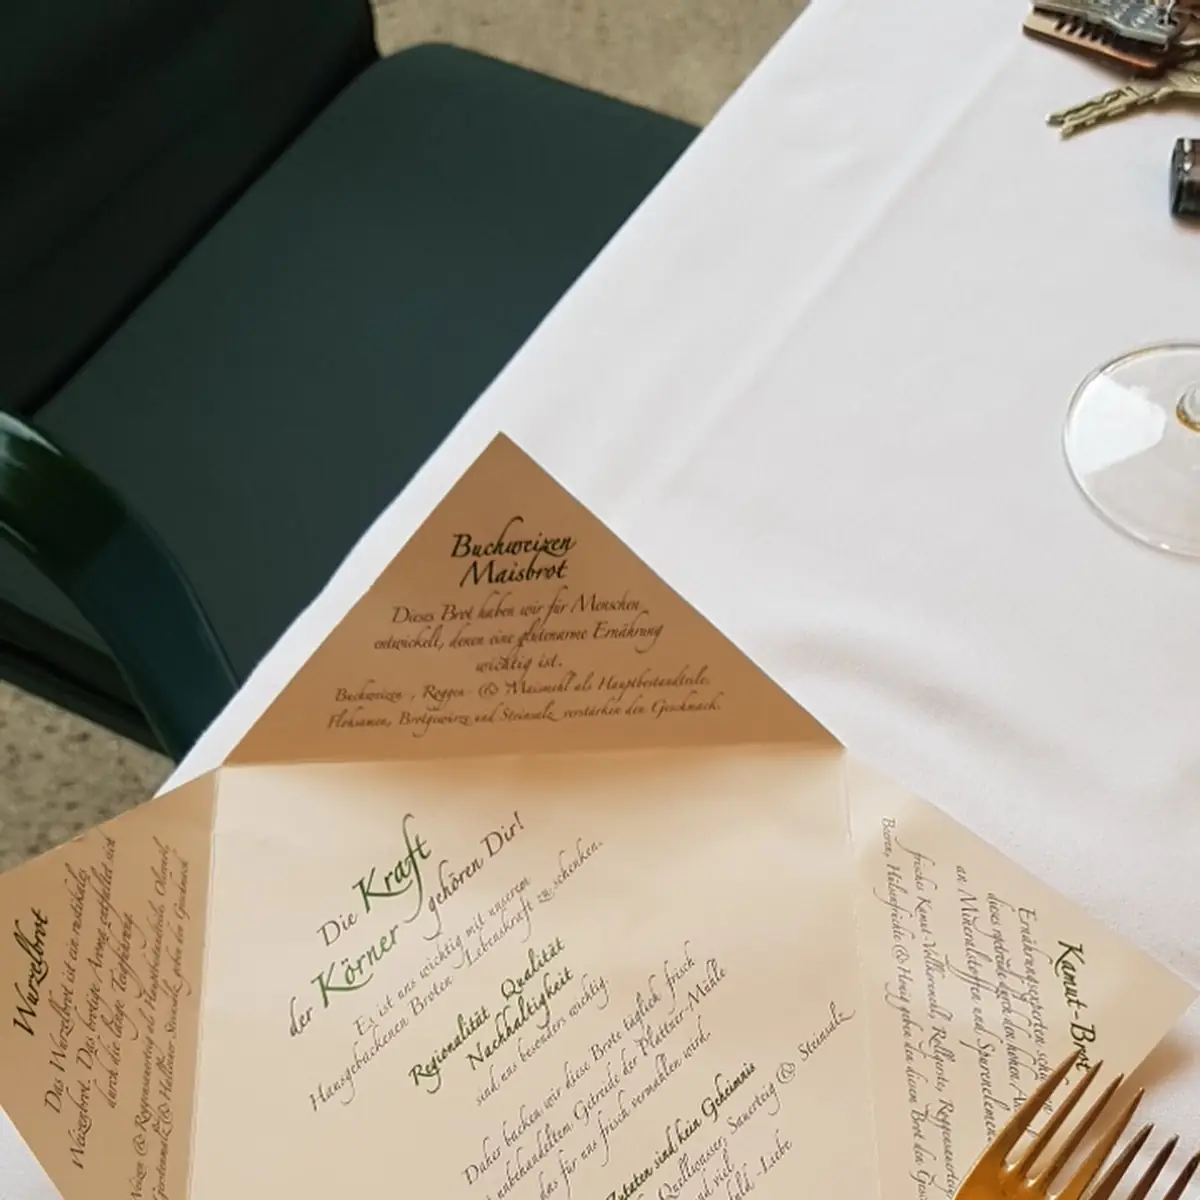 Buchweizen
Maisbrot
Dieses Brot haben wir für Menschen
entwickelt, denen eine glutenarme Ernährung
wichtig ist.
Buchweizen-, Roggen- & Maismehl als Hauptbestandteile.
Flohsamen, Brotgewürze und Steinsalz verstärken den Geschmack.
Die Kraft
der Körner gehören Dir!
Es ist uns wichtig mit unserem
Hausgebackenen Broten Lebenskraft zu schenken.
Regionalität Qualität
Nachhaltigkeit
sind uns besonders wichtig
Daher backen wir diese Brote täglich frisch
unbehandeltem Getreide der Plattner-Mühle
das für uns frisch vermahlen wird.
Zutaten sind kein Geheimnis
Quellwasser, Sauerteig & Steinsalz
und viel
-Liebe
Wurzelbrot
Das Wurzelbrot ist ein rustikales
Weizenbrot. Das brotige Aroma entfaltet sich
durch die lange Teigführung.
Weizen & Roggensauerteig als Hauptbestandteile. Olivenöl,
Gerstenmalz & Halleiner Steinsalz geben den Geschmack
Kamut-Brot
Ernährungsexperten
dieses Getreide durch den hohen
an Mineralstoffen und
frisches Kamut-Vollkornmehl, Rollgerste, Roggensauerteig
Beeren, Hülsenfrüchte & Honig geben den diesen Brot den